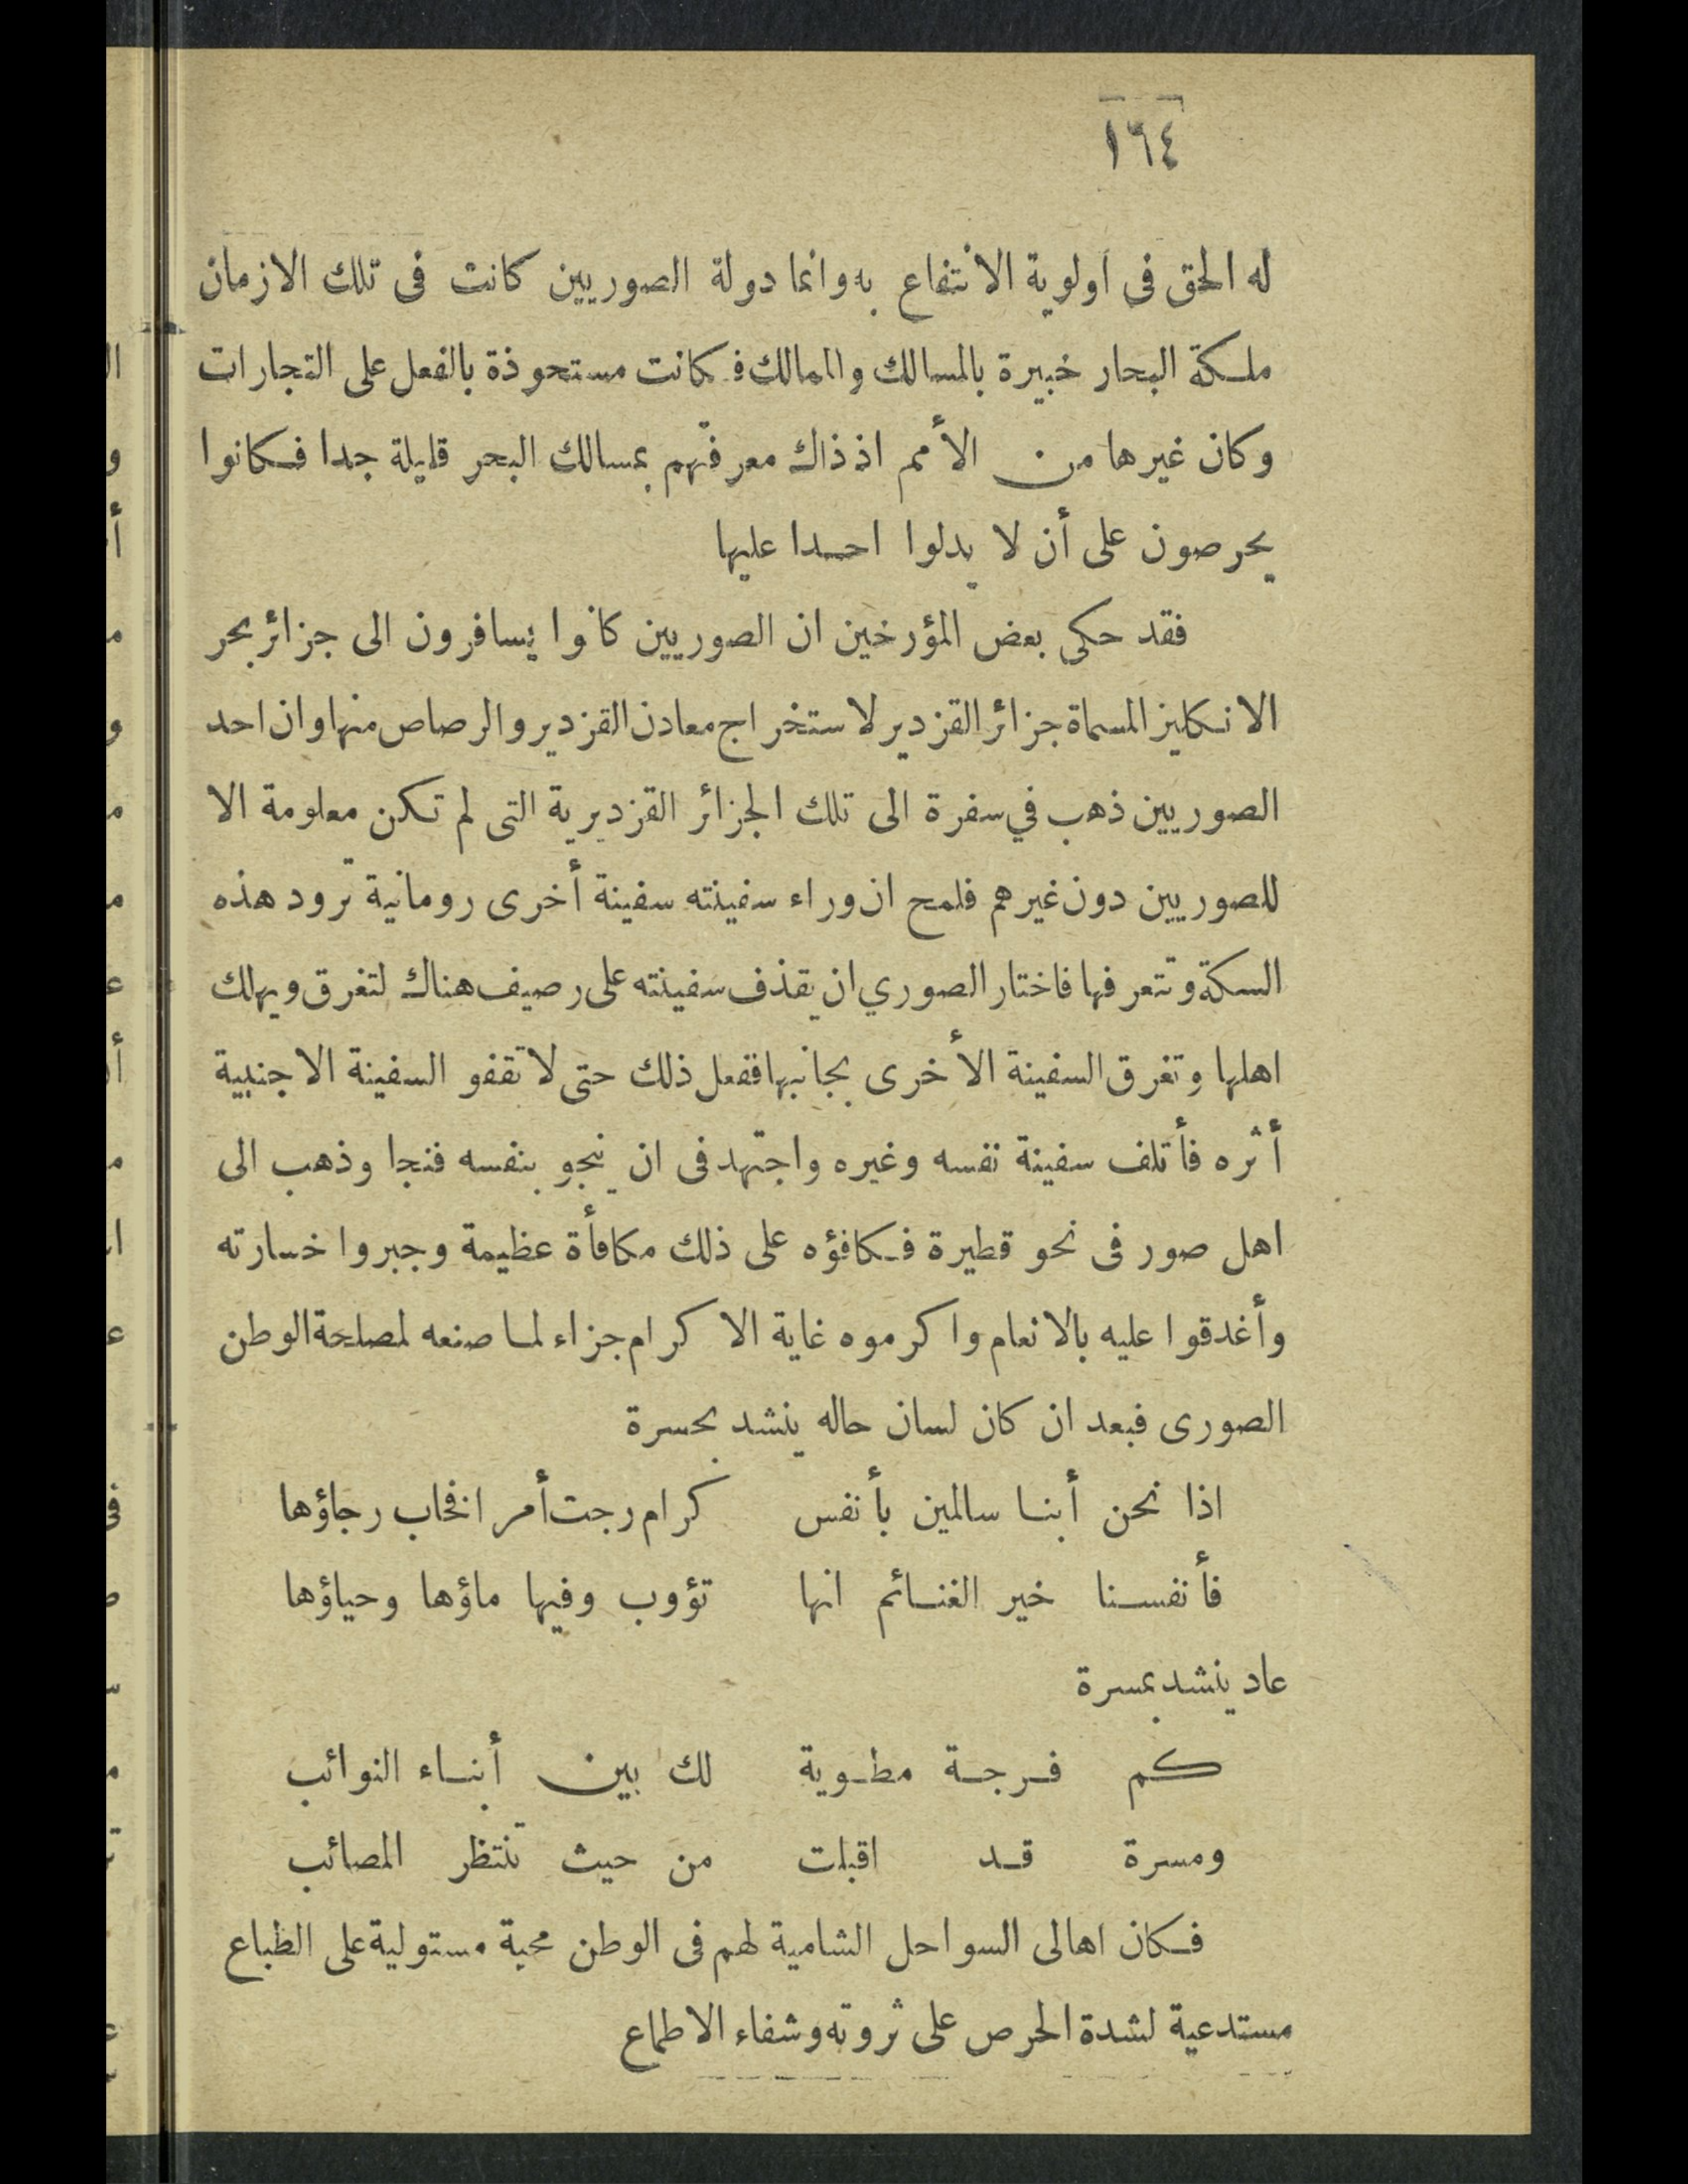 ١٦٤
له الحق فى اولوية الانتفاع به وانما دولة الصوريين كانت فى تلك الازمان
ملكة البحار خبيرة بالمسالك والممالك فكانت مستحوذة بالفعل على التجارات
وكان غيرها من الأمم اذ ذاك معرفتهم بمسالك البحر قليلة جدا فكانوا
يحرصون على أن لا يدلوا احدا عليها
فقد حكى بعض المؤرخين ان الصوريين كانوا يسافرون الى جزائر بحر
الانكليز المسماة جزائر القزدير لاستخراج معادن القزدير والرصاص منها وان احد
الصوريين ذهب في سفرة الى تلك الجزائر القزديرية التى لم تكن معلومة الا
للصوريين دون غيرهم فلمح ان وراء سفينته سفينة أخرى رومانية ترود هذه
السكة وتتعرفها فاختار الصوري ان يقذف سفينته على رصيف هناك لتغرق ويهلك
اهلها وتغرق السفينة الأخرى بجانبها ففعل ذلك حتى لا تقفو السفينة الاجنبية
أثره فأتلف سفينة نفسه وغيره واجتهد فى ان ينجو بنفسه فنجا وذهب الى
اهل صور فى نحو قطيرة فكافؤه على ذلك مكافأة عظيمة وجبروا خسارته
وأغدقوا عليه بالانعام واكرموه غاية الاكرام جزاء لما صنعه لمصلحة الوطن
الصورى فبعد ان كان لسان حاله ينشد بحسرة
اذا نحن أبنا سالمين بأنفس كرام رجت أمرا فخاب رجاؤها
فأنفسنا خير الغنائم انها تؤوب وفيها ماؤها وحياؤها
عاد ينشد بمسرة
كم فرجة مطوية لك بين أبناء النوائب
ومسرة قد اقبلت من حيث تنتظر المصائب
فكان اهالى السواحل الشامية لهم فى الوطن محبة مستولية على الطباع
مستدعية لشدة الحرص على ثروته وشفاء الاطماع